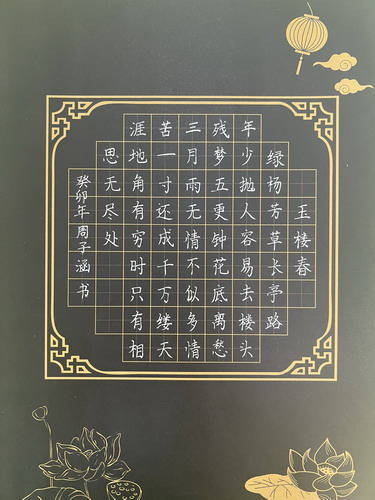 玉楼春
绿杨芳草长亭路
年少抛人容易去楼头
残梦五更钟花底离愁
三月雨无情不似多情
苦一寸还成千万缕天
涯地角有穷时只有相
思无尽处
癸卯年周子涵书